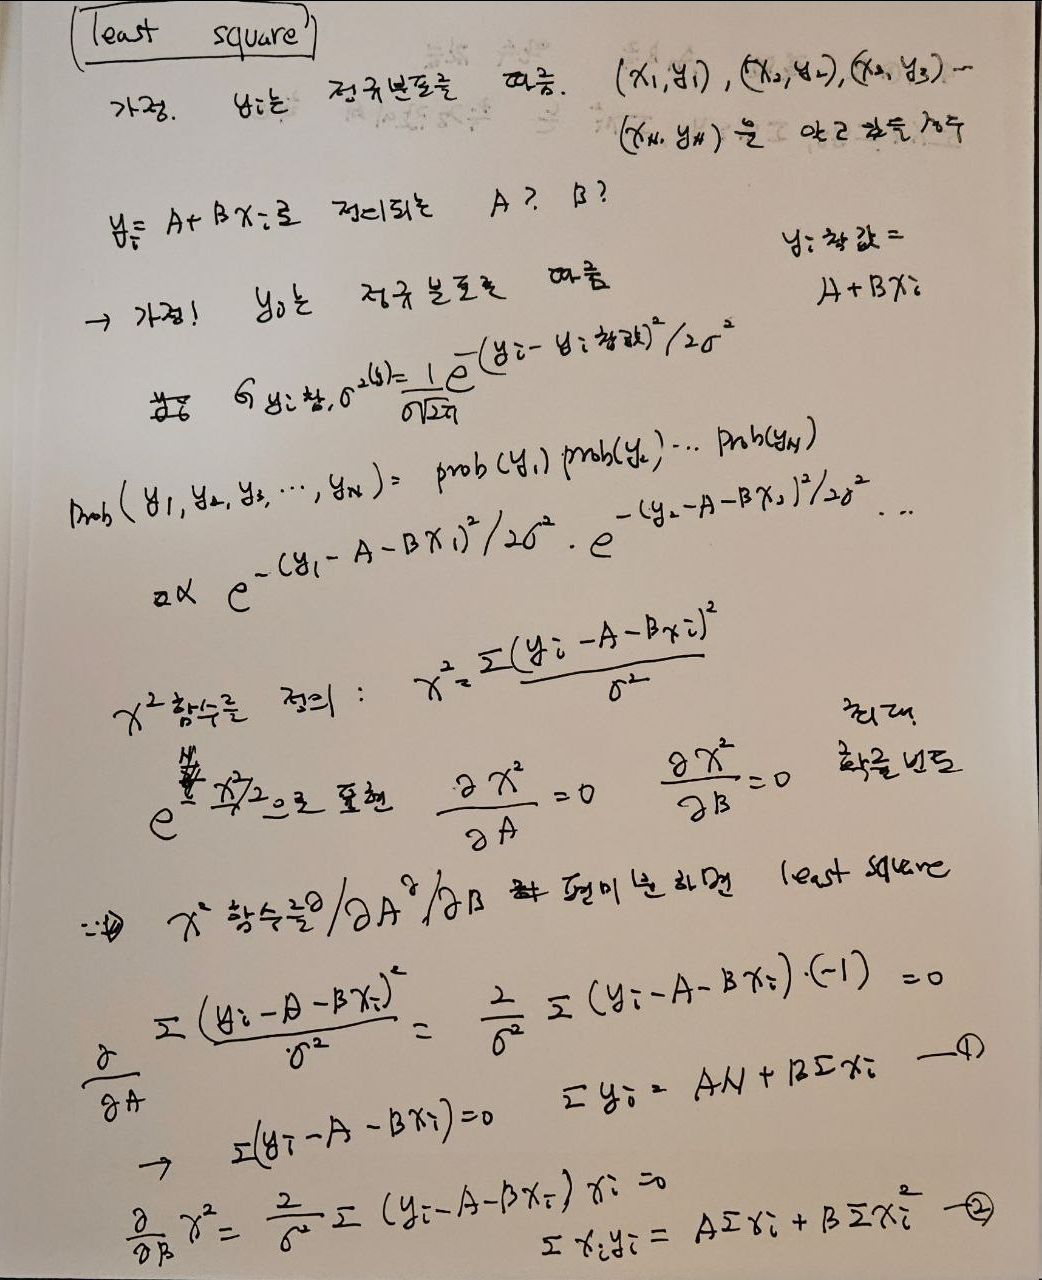 least square
가정. yi는 정규분포를 따름. (x1,y1), (x2,y2), (x3, y3) ...
(xN. yN) 을 안고 있을 경우
yi= A+Bxi로 정의되는 A? B?
yi참값 =
A+Bxi
→ 가정! yi는 정규분포를 따름
G yi참,σ²(yi)= 1/σ√2π e^-(yi- yi참값)²/2σ²
Prob(y1,y2,y3,...,yN)= prob(y1) prob(y2)... prob(yN)
∝ e^-(y1-A-Bx1)²/2σ² · e^-(y2-A-Bx2)²/2σ² ...
χ² 함수를 정의 : χ²= Σ(yi-A-Bxi)²/σ²
e^-χ²/2으로 표현 ∂χ²/∂A =0 ∂χ²/∂B =0 최대 확률 빈도
χ² 함수를 ∂/∂A ∂/∂B 편미분하면 least square
∂/∂A Σ(yi-A-Bxi)²/σ² = 2/σ² Σ(yi-A-Bxi)·(-1) =0
→ Σ(yi-A-Bxi)=0 Σyi= AN+BΣxi —①
∂/∂B χ²= 2/σ² Σ(yi-A-Bxi)xi=0
Σxiyi= AΣxi+BΣxi² —②